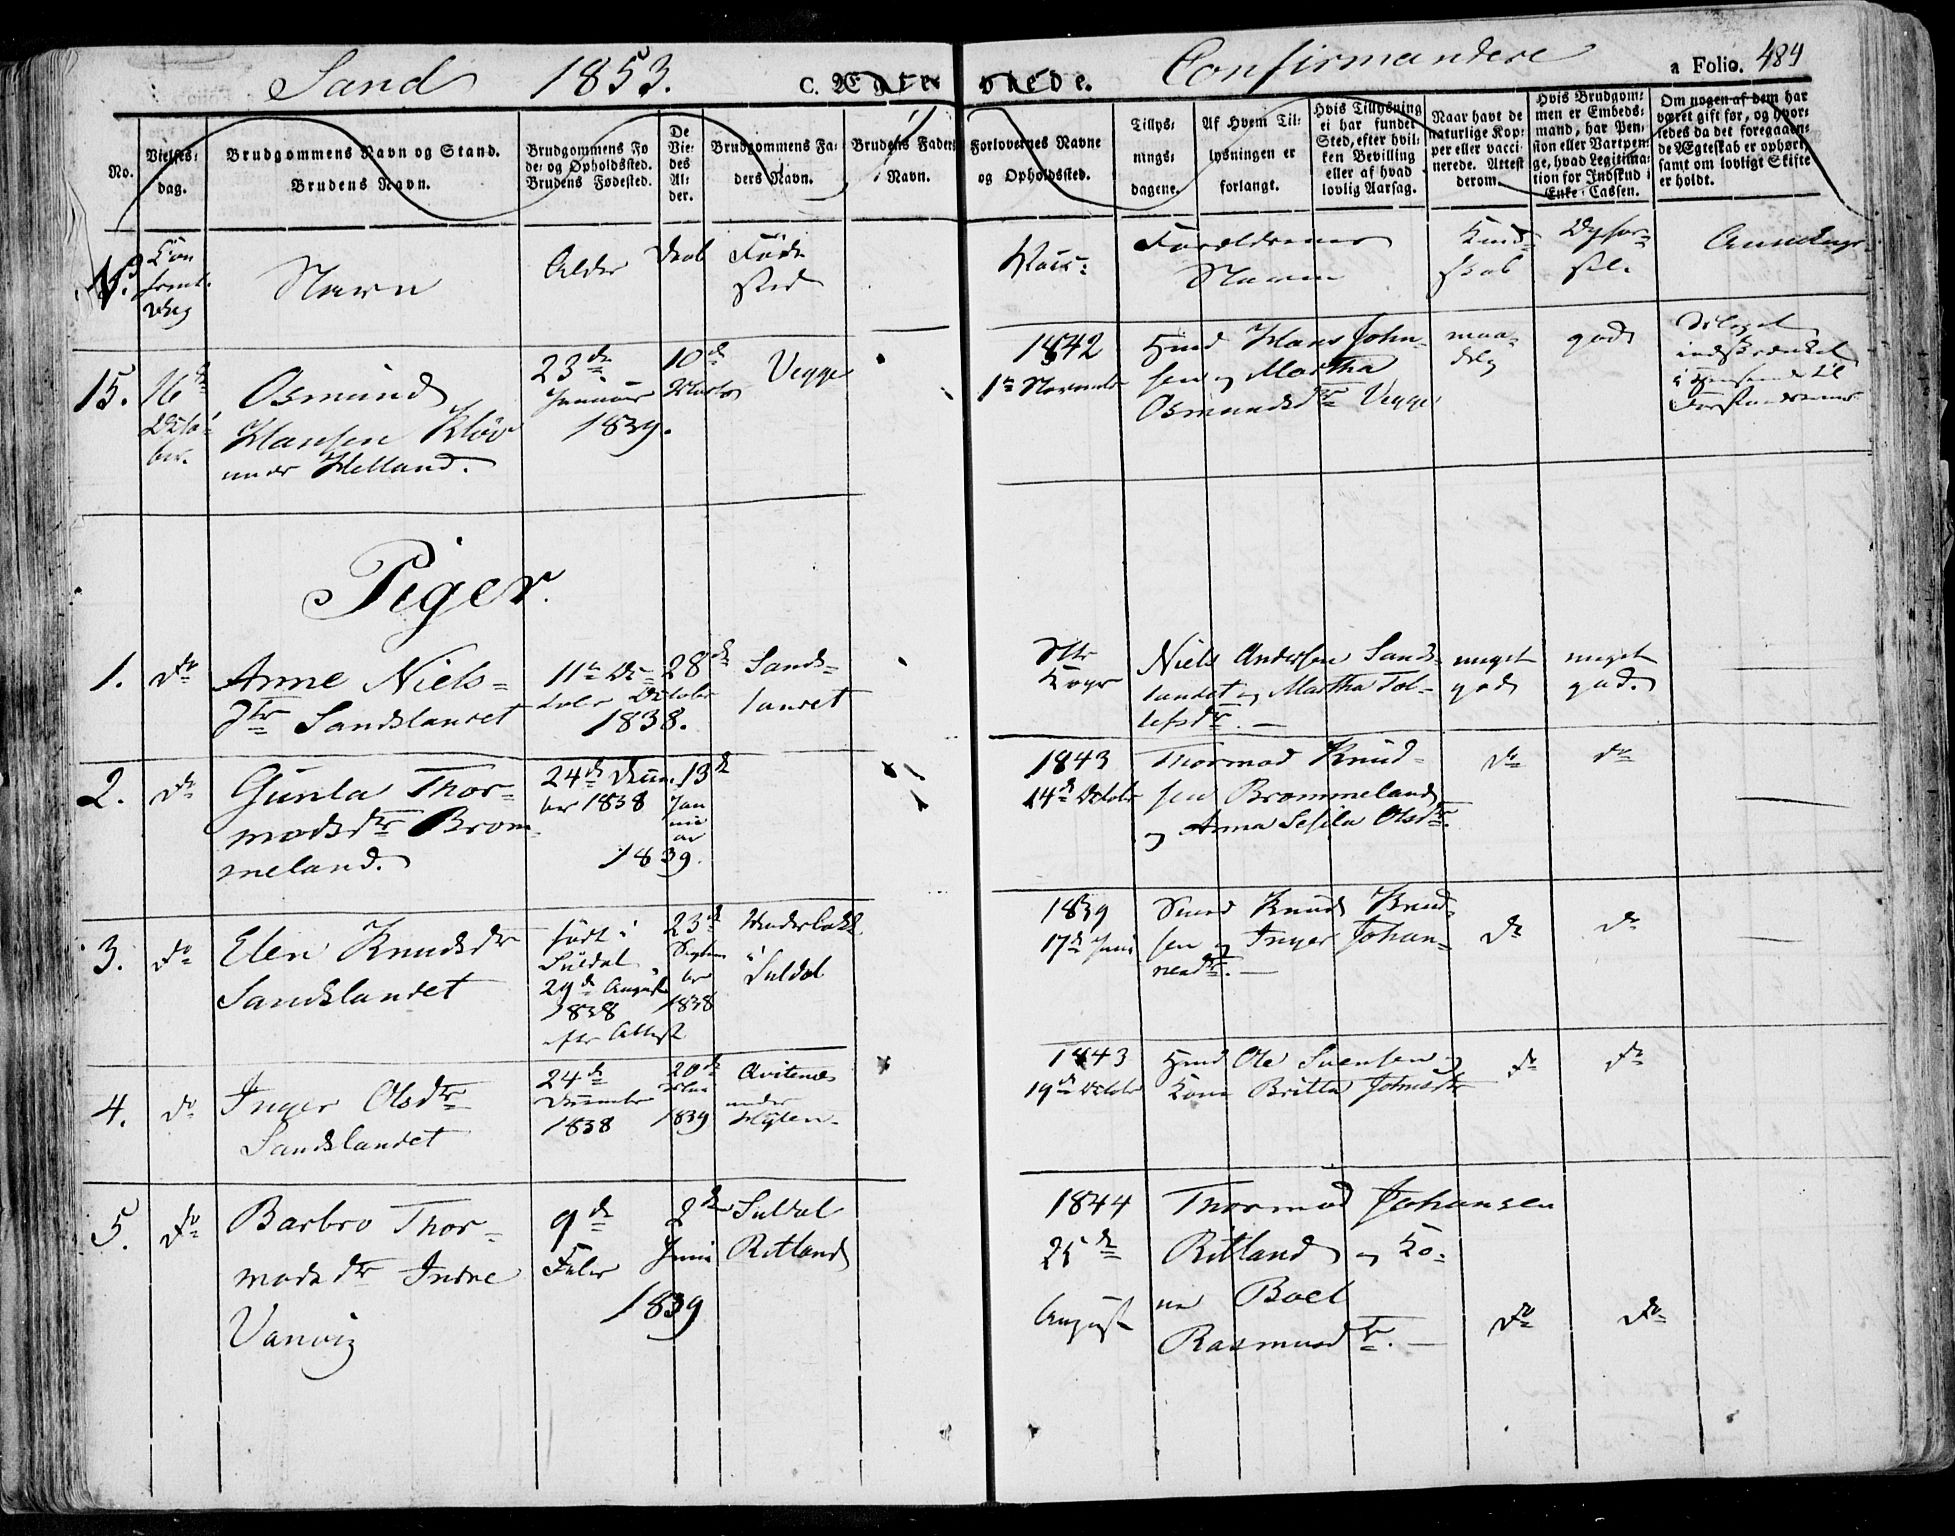 Sand 1853.
C. Ægteviede.
Confirmandere
a Folio. 484
No.
Vielses-
dag.
Brudgommens Navn og Stand.
Brudens Navn.
Brudgommens Fø
de- og Opholdssted.
Brudens Fødested.
De
Vie-
des
Al-
der.
Brudgommens Fa-
ders Navn.
Brudens Faders
Navn.
Forlovernes Navne
og Opholdssted.
Tillys-
nings-
dagene.
Af Hvem Til-
lysningen er
forlangt.
Hvis Tillysning
ei har fundet
Sted, efter hvil-
ken Bevilling
eller af hvad
lovlig Aarsag.
Naar havt de
naturlige Kop-
per eller vacci-
nerede. Attest
derom.
Hvis Brudgom-
men er Embeds-
mand, har Pen-
sion eller Vartpen-
ge, hvad Legitima-
tion for Indskud i
Enke-Cassen.
Om nogen af dem har
været gift før, og hvor-
ledes da det foregaaen-
de Ægteskab er ophørt,
samt om lovligt Skifte
er holdt.
No.
Con
firmt.
Dag
Navn
Alder
Daab
Føde
sted
Vacc:
Forældrenes
Navne
Kund-
skab
Opfør-
sel.
15.
16de
Octo-
ber.
Osmund
Hansen Kløv
under Helland.
23de
Januar
1839.
10de
Marts
Vegge
1842
1te November
Hmd Hans John-
sen og Martha
Osmundsdtr Vegge
maa-
delig
god
Piger.
1.
do
Anne Niels-
dtr Sandslandet
11te Oc-
tober
1838.
28de
October
Sands-
landet
Niels Andersen Sands-
landet og Martha Tol-
lefsdtr. —
meget
god
meget
god.
2.
do
Gunla Thor-
modsdtr Brom-
meland.
24de Decem-
ber 1838
13de
Jan
nu
ar
1839.
1843
14de October
Thormod Knud-
sen Brommeland
og Anna Sesila Olsdtr.
do
do
3.
do
Elen Knudsdtr
Sandslandet
født i
Suldal
29de August
1838
efter Attest
23de
Septem
ber
1838
i
Suldal
1839
17de Juni
Knud Knud-
sen og Inger Johan-
nesdtr. —
do
do
4.
do
Inger Olsdtr
Sandslandet
24de
December
1838
20de
1839
Qvitenes
under
Hylen.
1843
19de October
Hmd Ole Svensen og
Kone Britta Johnsdtr
do
do
5.
do
Barbro Thor-
modsdtr Indre
Vanvig
9de
Febr
2den
Juni
1839
Suldal
Ritland
1844
25de
August
Thormod Johansen
Ritland og Ko-
ne Boel
Rasmusdtr. —
do
do